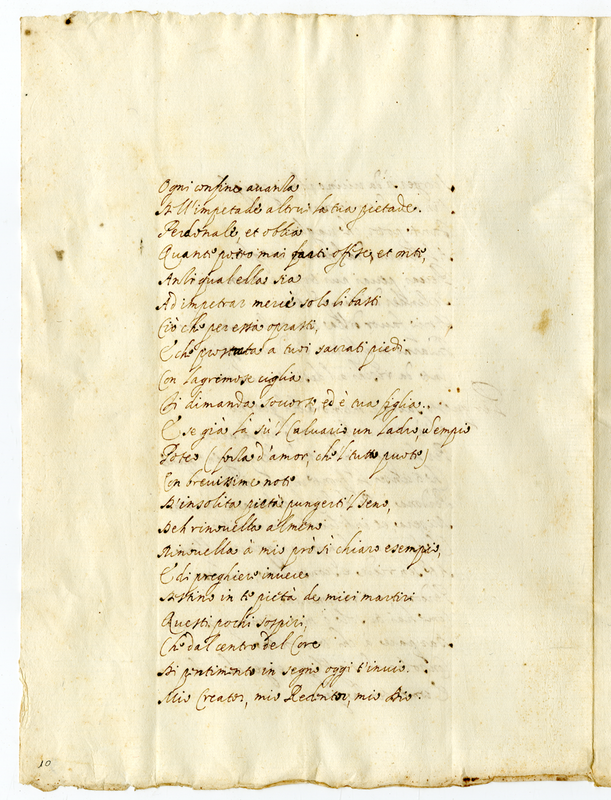 Ogni confine avanza
All'impetade altrui la tua pietade.
Perdonale, et oblia
Quante potèo mai farti offese, et onte,
Anzi qual ella sia
Ad impetrar mercè solo li basti
Ciò che per essa oprasti,
E che prostrata a tuoi sacrati piedi
Con lagrimose ciglia
Ti dimanda soccorso, ed è tua figlia.
E se già là su'l Calvario un ladro, un empio
Poteo (forza d'amor, che'l tutto puote)
Con brevissime note
D'insolita pietà pungerti 'l seno,
Deh rinovella almeno
Rinovella à mio prò sì chiaro esempio,
E di preghiere invece
Destino in te pietà de miei martiri
Questi pochi sospiri,
Che dal centro del Core
Di pentimento in segno oggi t'invio.
Mio Creator, mio Redentor, mio Dio.
10